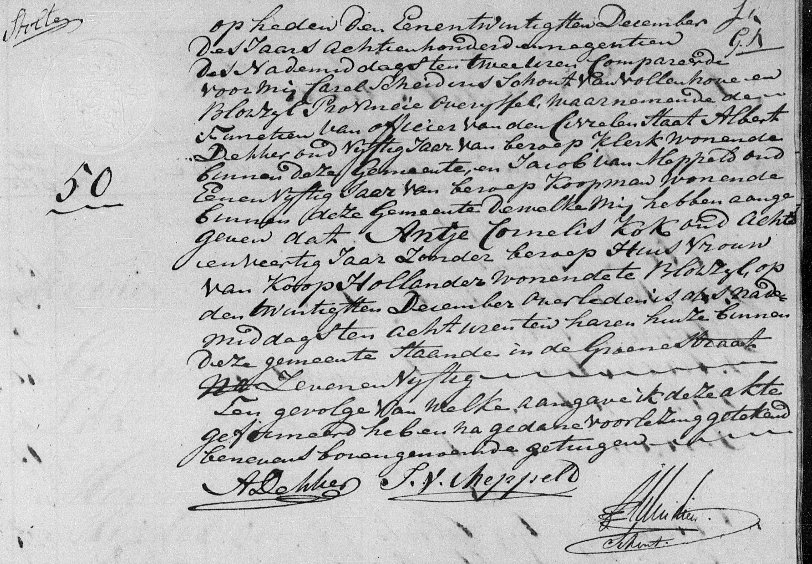 op heden den Eenentwintigsten December
des Jaars achtienhonderd en negentien
des Nademiddags ten twee uren Compareerde
voor mij Carel Scheidius Schout van vollenhove en
Blokzyl Provincie Overyssel, waarnemende de
Functien van officier van den Civielen Staat Albert
Dekker oud vyftig Jaar van beroep Klerk wonende
binnen deze Gemeente, en Jacob van Meppeld oud
Eenenvyftig Jaar van beroep Koopman wonende
binnen deze Gemeente Dewelke mij hebben aange
geven dat Antje Cornelis Kok oud acht
en veertig Jaar Zonder beroep Huis Vrouw
van Koop Hollander wonende te Blokzyl, op
den twintigsten December overleden is des Nade-
middags ten acht uren ten haren huize binnen
deze gemeente Staande in de Groene Straat
No Zeven en Vyftig
Ten gevolge van welke aangave ik deze akte
geformeerd heb en na gedane voorlezing getekend
benevens bovengenoemde getuigen
50
ADekker J. V. Meppeld
Schout